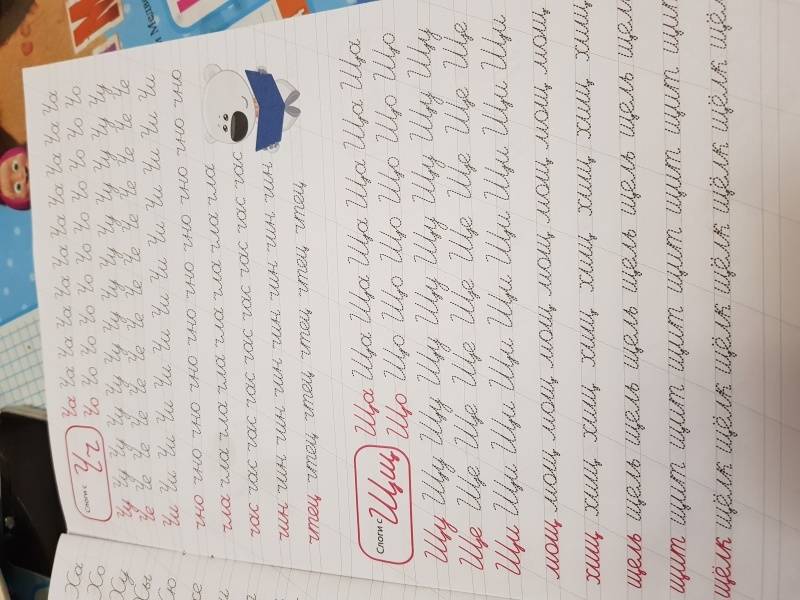 Слоги с Чч
Ча Ча Ча Ча Ча Ча Ча Ча Ча Ча Ча
Чо Чо Чо Чо Чо Чо Чо Чо Чо Чо Чо
Чу Чу Чу Чу Чу Чу Чу Чу Чу Чу Чу Чу Чу Чу
Че Че Че Че Че Че Че Че Че Че Че Че Че Че
Чи Чи Чи Чи Чи Чи Чи Чи Чи Чи Чи Чи Чи
чно чно чно чно чно чно чно чно чно чно
чла чла чла чла чла чла чла чла чла
час час час час час час час час час
чин чин чин чин чин чин чин чин
чтец чтец чтец чтец чтец
Слоги с Щщ
Ща Ща Ща Ща Ща Ща Ща Ща
Що Що Що Що Що Що Що Що
Щу Щу Щу Щу Щу Щу Щу Щу Щу Щу
Ще Ще Ще Ще Ще Ще Ще Ще Ще
Щи Щи Щи Щи Щи Щи Щи Щи Щи Щи
мощ мощ мощ мощ мощ мощ мощ мощ мощ
хищ хищ хищ хищ хищ хищ хищ хищ хищ
щель щель щель щель щель щель щель щель
щит щит щит щит щит щит щит щит щит
щёлк щёлк щёлк щёлк щёлк щёлк щёлк щёлк
Ха
Хо
Ху
Хы